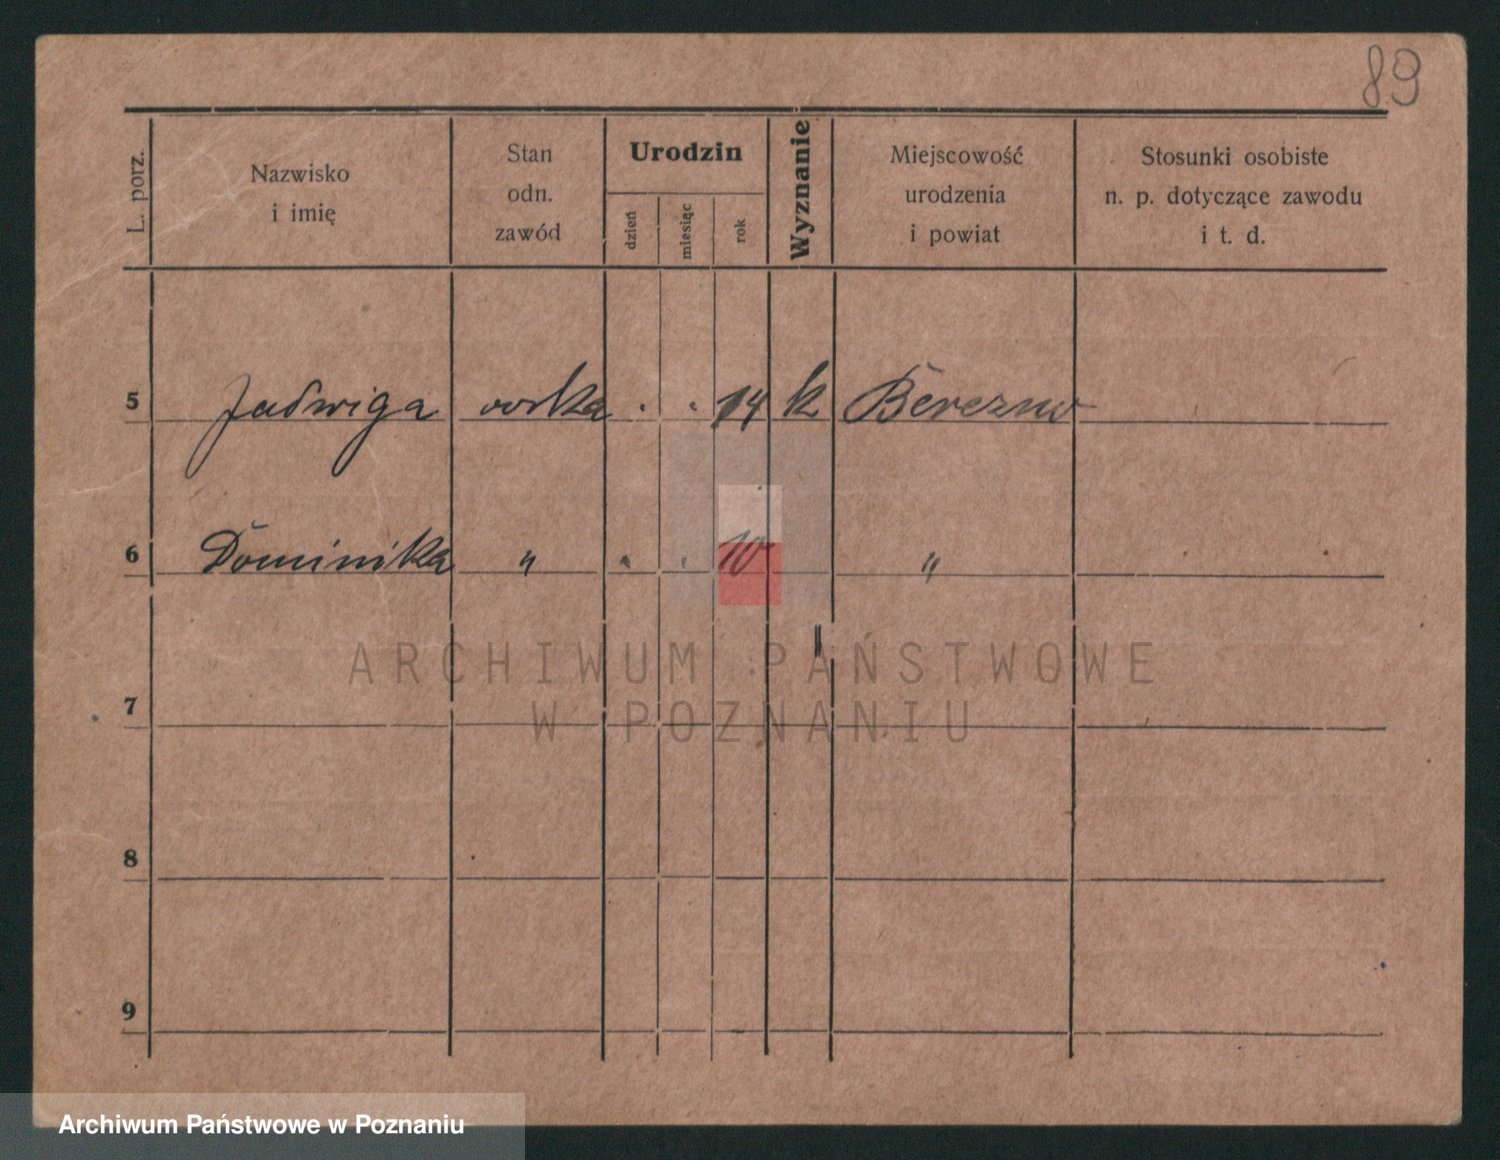 89
L. porz. Nazwisko i imię Stan odn. zawód Urodzin dzień miesiąc rok Wyznanie Miejscowość urodzenia i powiat Stosunki osobiste n. p. dotyczące zawodu i t. d.
5 Jadwiga . . 14 k Berezno
6 Dominika " . . 10 "
ARCHIWUM PAŃSTWOWE
7
W POZNANIU
8
9
Archiwum Państwowe w Poznaniu